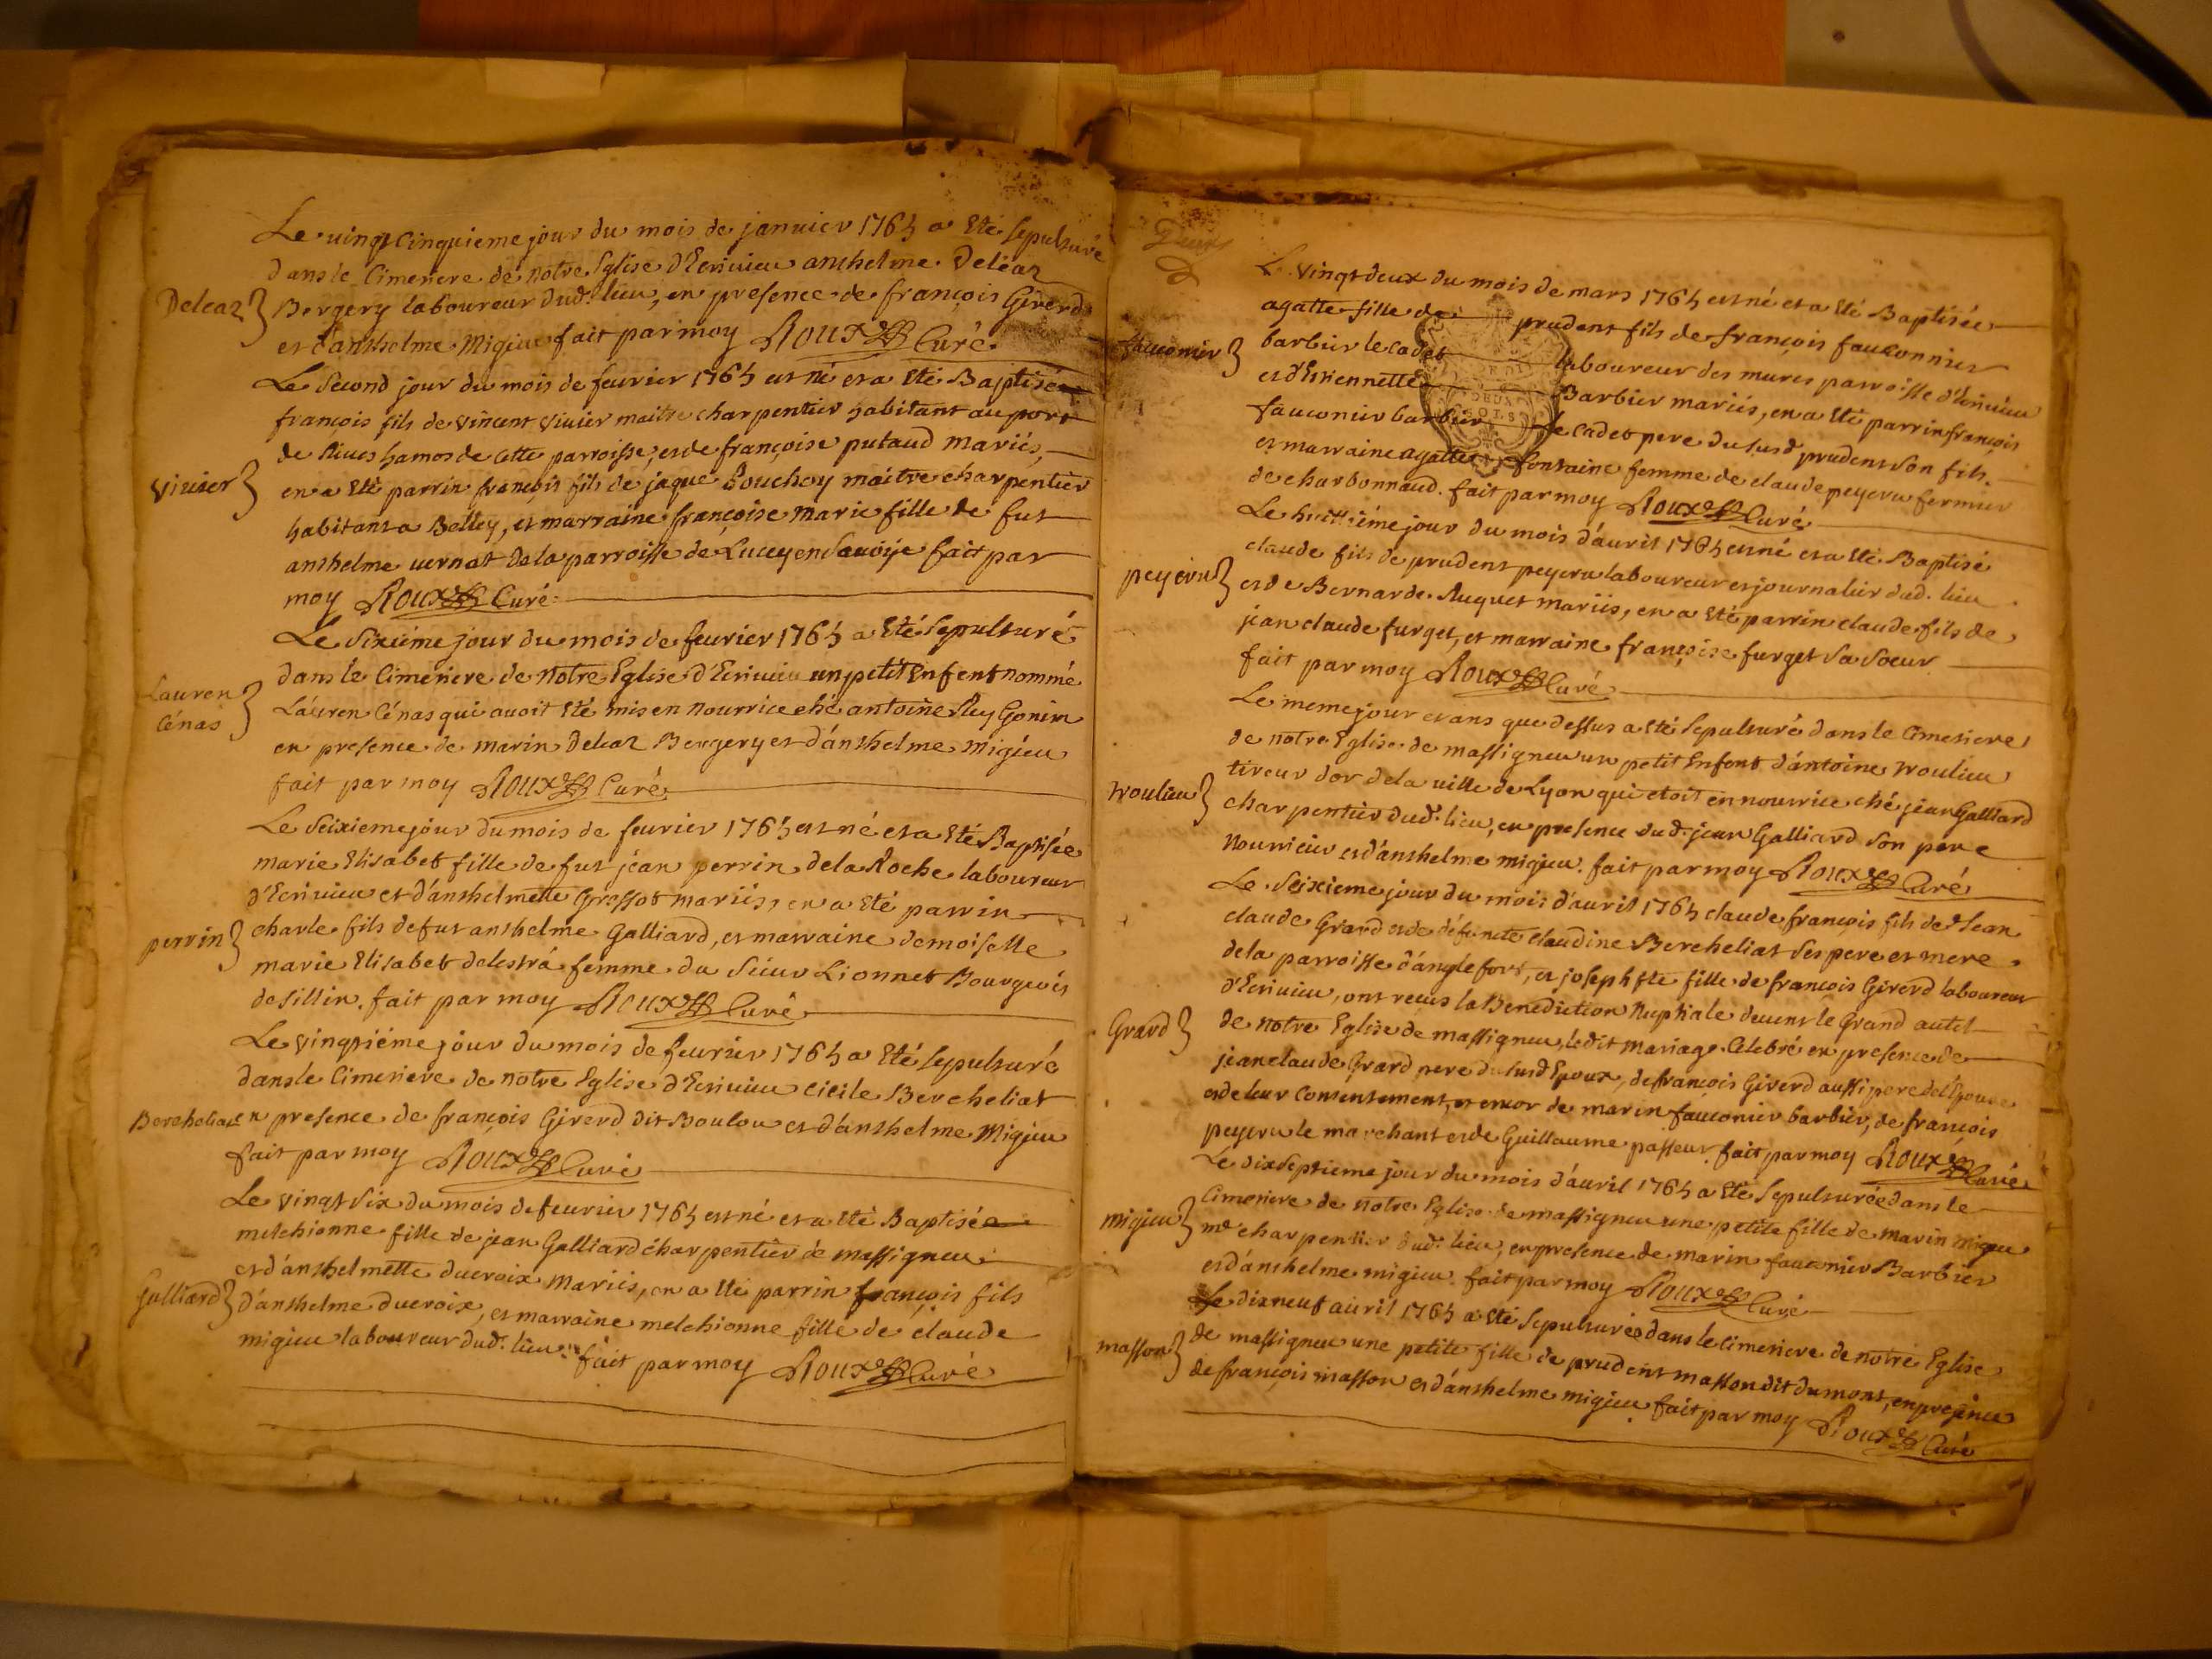 Le vingt cinquieme jour du mois de janvier 1765 a Eté Sepulturé
dans le Cimetiere de notre Eglise d'Ecrivieu anthelme Deléaz
Deleaz
Bergery laboureur dud. lieu, en presence de françois Girerd
et d'anthelme Migieu fait par moy Roux Curé
Le Second jour du mois de fevrier 1765 est né et a Eté Baptisé
françois fils de vincent vivier maitre charpentier habitant au port
de Rives hamos de cette parroisse, et de françoise putaud mariés,
vivier
en a Eté parrin françois fils de jaque Bouchoy maitre charpentier
habitant a Belley, et marraine françoise marie fille de fut
anthelme vernat de la parroisse de Lucey en Savoije fait par
moy Roux Curé
Le Sixiéme jour du mois de fevrier 1765 a Eté Sepulturé
dans le Cimetiere de notre Eglise d'Ecrivieu un petit Enfent nommé
Lauren
Cénas
Lauren Cénas qui avoit Eté mis en nourrice ché antoine Rey Gonin
en presence de marin Deleaz Bergery et d'anthelme migieu
fait par moy Roux Curé
Le Seixieme jour du mois de fevrier 1765 est né et a Eté Baptisée
marie Elisabet fille de fut jean perrin de la Roche laboureur
d'Ecrivieu et d'anthelmette Grossot mariés, en a Eté parrin
perrin
charle fils de fut anthelme Galliard, et marraine demoiselle
marie Elisabet delestrá femme du Sieur Lionnet Bourgeois
de fillin. fait par moy Roux Curé
Le vingtiéme jour du mois de fevrier 1765 a Eté Sepulturé
dans le Cimetiere de notre Eglise d'Ecrivieu Cicile Bercheliat
Bercheliat
en presence de françois Girerd dit Boulou et d'anthelme Migieu
fait par moy Roux Curé
Le vingt Six du mois de fevrier 1765 est né et a Eté Baptisée
melchionne fille de jean Galliard charpentier de massigneu
et d'anthelmette ducroix mariés, en a Eté parrin françois fils
Galliard
d'anthelme ducroix, et marraine melchionne fille de claude
migieu laboureur dud. lieu fait par moy Roux Curé
Le vingt deux du mois de mars 1765 est né et a Eté Baptisée
agatte fille de prudent fils de françois fauconnier
fauconnier
barbier le cadet laboureur des mures parroisse d'Ecrivieu
et d'Etiennette Barbier mariés, en a Eté parrin françois
fauconier barbier le cadet pere du susd prudent son fils.
DEUX
SOLS
et marraine agatte fontaine femme de claude peyeru fermier
de charbonnaud. fait par moy Roux Curé
Le huittiéme jour du mois d'avril 1765 est né et a Eté Baptisé
claude fils de prudent peyeru laboureur et journalier dud. lieu
peyeru
et de Bernarde Ruquet mariés, en a Eté parrin claude fils de
jean claude furget, et marraine françoise furget Sa Soeur
fait par moy Roux Curé
Le meme jour et ans que dessus a Eté Sepulturé dans le Cimetiere
de notre Eglise de massigneu un petit Enfent d'antoine
tireur d'or de la ville de Lyon qui etoit en nourrice ché jean Galliard
charpentier dud. lieu, en presence dud. jean Galliard Son pere
nourricier et d'anthelme migieu. fait par moy Roux Curé
Le Seixieme jour du mois d'avril 1765 claude françois fils de Jean
claude Grard et de défuncte claudine Bercheliat Ses pere et mere
de la parroisse d'anglefort, et josephte fille de françois Girerd laboureur
d'Ecrivieu, ont reçus la Benediction Nuptiale devent le Grand autel
Grard
de notre Eglise de massigneu, ledit mariage Celebré en presence de
jean claude Grard pere du susd Epoux, de françois Girerd aussi pere de l'Epouse
et de leur Consentement, et encor de marin fauconier barbier, de françois
peyeru le marchant et de Guillaume passeur fait par moy Roux Curé
Le dixseptieme jour du mois d'avril 1765 a Eté Sepulturée dans le
Cimetiere de notre Eglise de massigneu une petite fille de marin migieu
migieu
me charpentier dud. lieu, en presence de marin fauconier Barbier
et d'anthelme migieu fait par moy Roux Curé
Le dixneuf avril 1765 a Eté Sepulturée dans le Cimetiere de notre Eglise
masson
de massigneu une petite fille de prudent masson dit dumont, en presence
de françois masson et d'anthelme migieu fait par moy Roux Curé